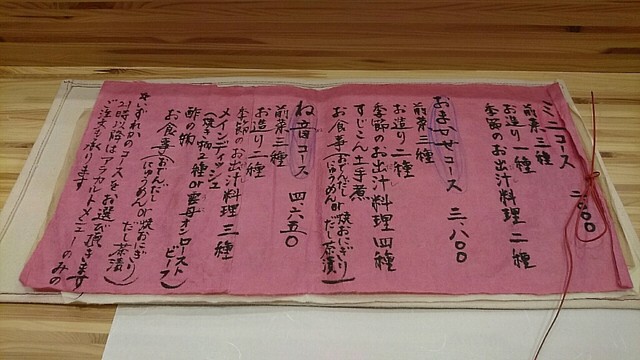 ミニコース 二、一〇〇
前菜三種
お造り一種
季節のお出汁料理 二種
おまかせコース 三、八〇〇
前菜三種
お造り二種
季節のお出汁料理四種
すじこん土手煮
お食事(おでんだしにゅうめんor焼おにぎりだし茶漬)
ね音コース 四、六五〇
前菜三種
お造り二種
季節のお出汁料理 三種
メインディッシュ
酢の物
お食事(おでんだしにゅうめんor焼おにぎりだし茶漬)
★いずれかのコースをお選び頂きます
21時以降はアラカルトメニューのみの
ご注文を承ります